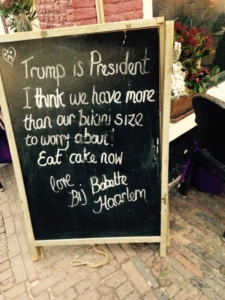 Trump is President
I think we have more
than our bikini size
to worry about!
Eat cake now
love Babette
Bij Haarlem